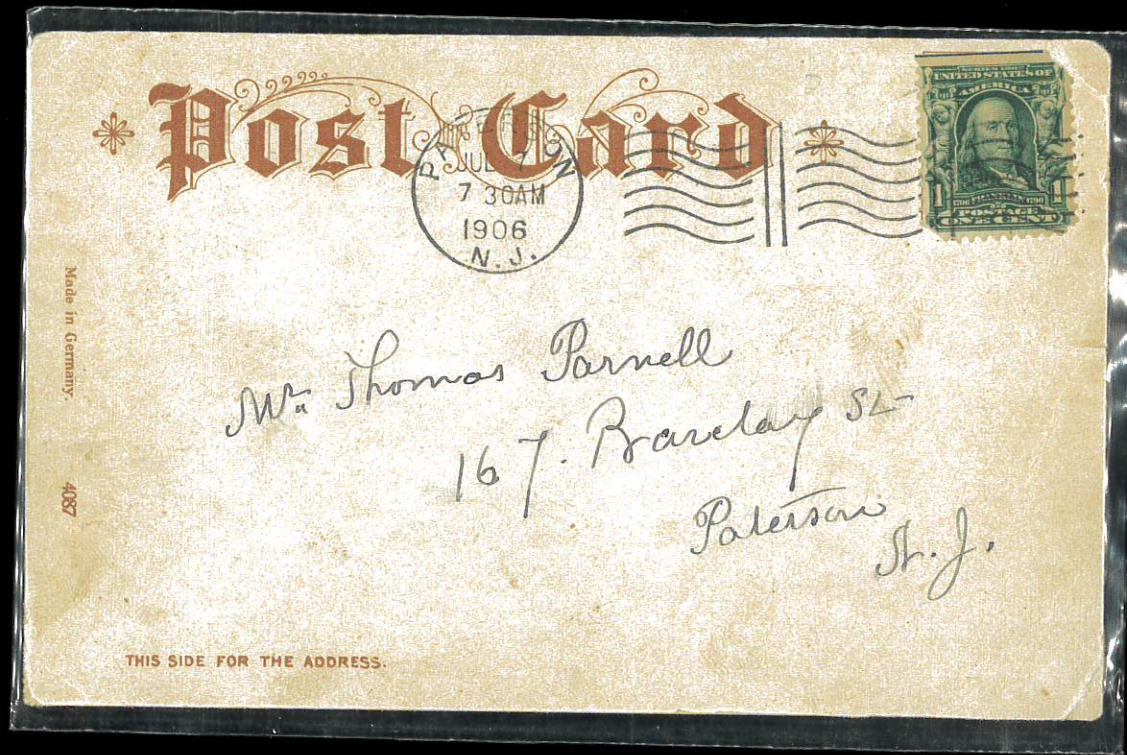 Post Card
PATERSON
JUL 7
7 30AM
1906
N. J.
SERIES 1902
UNITED STATES OF
AMERICA
1 1
1706 FRANKLIN 1790
POSTAGE
ONE CENT
Made in Germany.
4087
Mr. Thomas Parnell
167. Barclay St
Paterson
N. J.
THIS SIDE FOR THE ADDRESS.